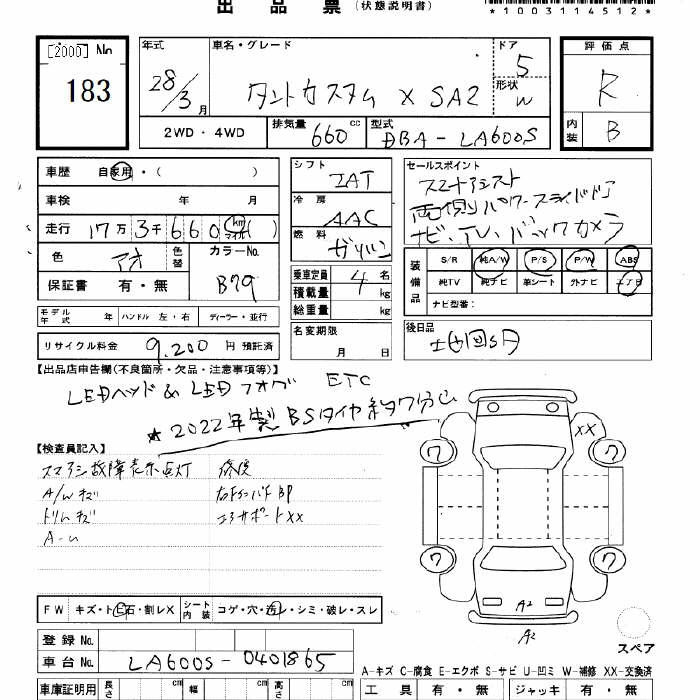 出品票 (状態説明書)
*1003114512*
[2000] No
183
年式 28/3月
車名・グレード タントカスタム X SA2
ドア 5
形状 W
2WD・4WD
排気量 660 cc
型式 DBA-LA600S
評価点 R
内装 B
車歴 自家用・( )
車検 年 月
走行 17万3千660 km マイル ( )
色 アオ
色替
カラーNo. B79
保証書 有・無
モデル年式 年 ハンドル 左・右 ディーラー・並行
リサイクル料金 9,200 円 預託済
シフト IAT
冷房 AAC
燃料 ガソリン
乗車定員 4 名
積載量 kg
総重量 kg
名変期限 月 日
セールスポイント
スマートアシスト
両側パワースライドドア
ナビ、TV、バックカメラ
装備品
S/R 純A/W P/S P/W ABS
純TV 純ナビ 革シート 外ナビ エアB
ナビ型番:
後日品
【出品店申告欄(不良箇所・欠品・注意事項等)】
LEDヘッド & LEDフォグ ETC
★2022年製 BSタイヤ 約7分山
【検査員記入】
スマアシ故障表示点灯 修復
A/W キズ
トリムキズ
コアサポートXX
XX
ワ ワ
ワ ワ
A2
A2
スペア
FW キズ・ト ビ石・割レX
シート内装 コゲ・穴・透レ・シミ・破レ・スレ
登録 No.
車台 No. LA600S-0401865
A-キズ C-腐食 E-エクボ S-サビ U-凹ミ W-補修 XX-交換済
車庫証明用 長さ cm 幅 cm 高さ cm
工具 有・無 ジャッキ 有・無